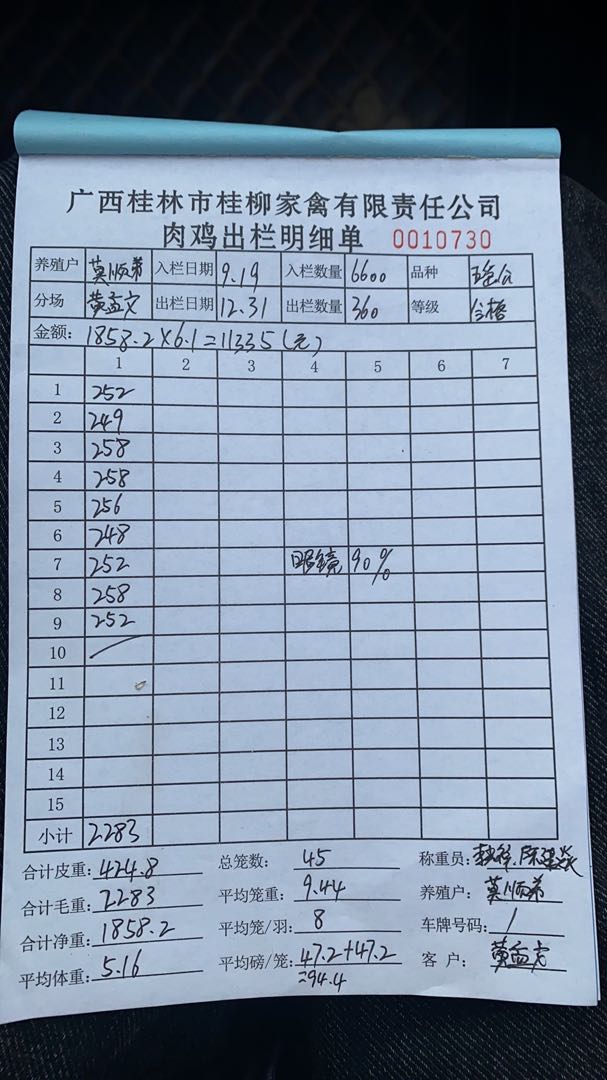 广西桂林市桂柳家禽有限责任公司
肉鸡出栏明细单 0010730
养殖户 莫顺弟 入栏日期 9.19 入栏数量 6600 品种
分场 黄孟文 出栏日期 12.31 出栏数量 360 等级 合格
金额: 1858.2×6.1=11335(元)
1 2 3 4 5 6 7
1 252
2 249
3 258
4 258
5 256
6 248
7 252 眼镜 90%
8 258
9 252
10
11
12
13
14
15
小计 2283
合计皮重: 424.8 总笼数: 45 称重员:
合计毛重: 2283 平均笼重: 9.44 养殖户: 莫顺弟
合计净重: 1858.2 平均笼/羽: 8 车牌号码: /
平均体重: 5.16 平均磅/笼: 47.2+47.2 客户: 黄孟文
=94.4